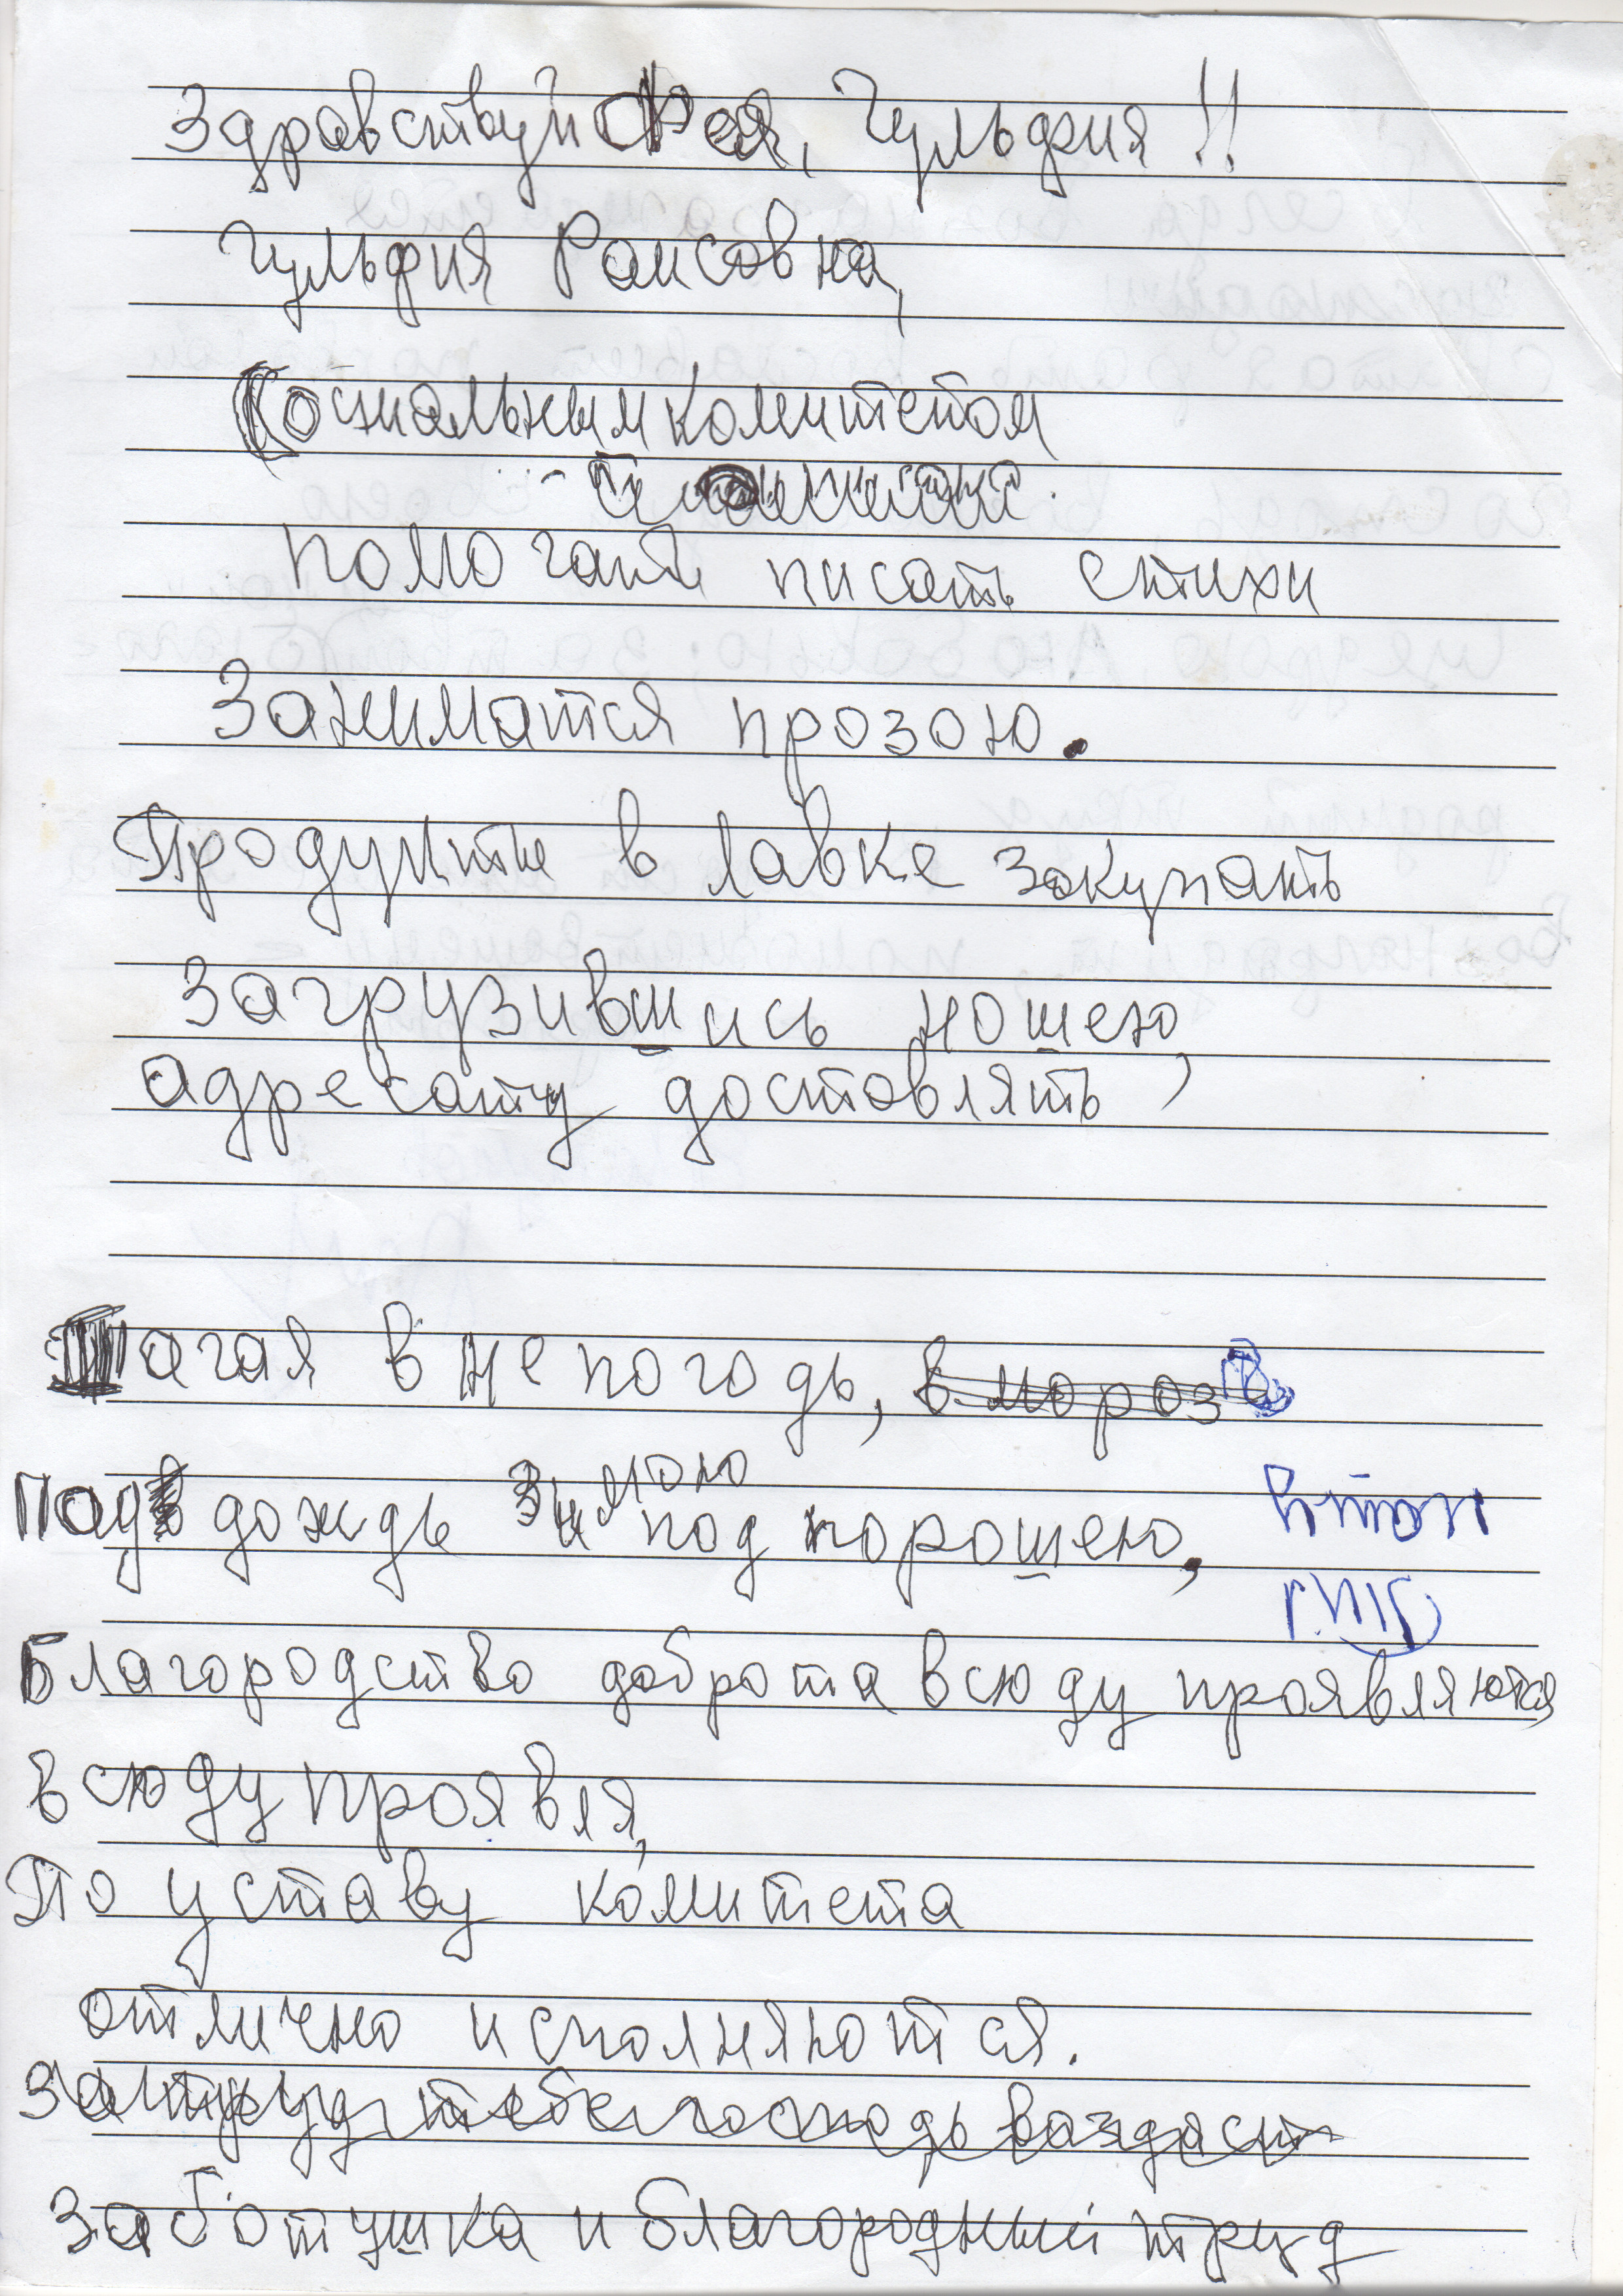 Здравствуй Фея, Гульфия !!
Гульфия Раисовна,
Социальным комитетом
помогать писать стихи
Заниматся прозою.
Продукты в лавке закупать
Загрузившись ношею,
адресату доставлять
Шагая в непогодь, в мороз
зимою
Под дождь под порошею,
Благородство доброта всюду проявляются
всюду проявля,
По уставу комитета
отлично исполняются.
За труд тебе господь воздаст
Заботушка и благородный труд